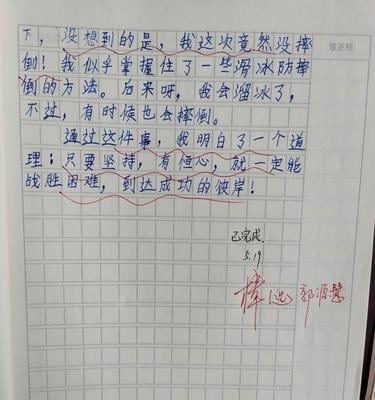 下，没想到的是，我这次竟然没摔
修正栏
倒！我似乎掌握住了一些滑冰防摔
倒的方法。后来呀，我会溜冰了，
不过，有时候也会摔倒。
通过这件事，我明白了一个道
理：只要坚持，有恒心，就一定能
战胜困难，到达成功的彼岸！
已完成.
5.19.
棒 选 郭源慧